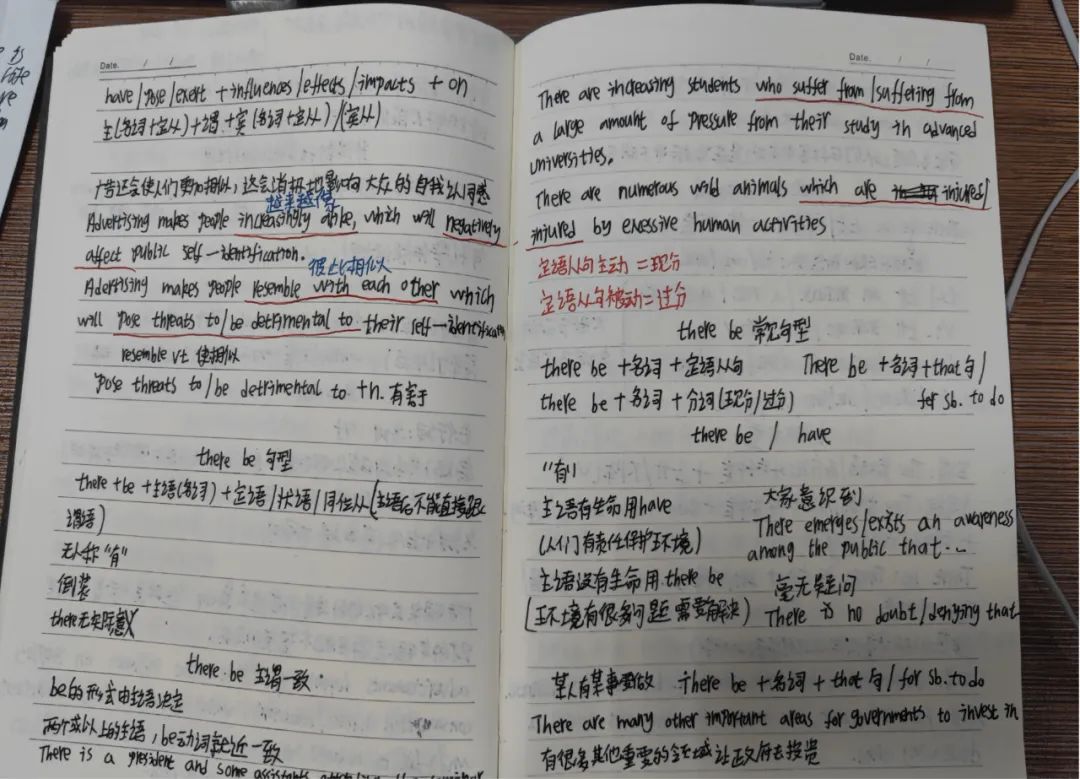 Date.
have/pose/exert + influences/effects/impacts + on
主(名词+定从)+谓+宾(名词+定从)/(宾从)
广告还会使人们更加相似，这会消极地影响大众的自我认同感
越来越像
Advertising makes people increasingly alike, which will negatively
affect public self-identification.
彼此相似
Adertising makes people resemble with each other which
will pose threats to/be detrimental to their self-identification
resemble vt. 使相似
pose threats to/be detrimental to +n. 有害于
there be 句型
there+be+主语(名词)+定语/状语/同位从(主语后不能直接跟
谓语)
无人称"有"
倒装
there无实际意义
there be 主谓一致
be的形式由主语决定
两个或以上的主语，be动词就近一致
There is a president and some assistants
Date.
There are increasing students who suffer from/suffering from
a large amount of pressure from their study in advanced
universities.
There are numerous wild animals which are injured/
injured by exessive human activities
定语从句主动=现分
定语从句被动=过分
there be 常见句型
there be +名词+定语从句 There be +名词+that句/
there be +名词+分词(现分/过分) for sb. to do
there be / have
"有"
主语有生命用have 大家意识到
(人们有责任保护环境) There emerges/exists an awareness
among the public that...
主语没有生命用there be 毫无疑问
(环境有很多问题需要解决) There is no doubt/denying that
某人有某事要做 There be +名词+that句/for sb. to do
There are many other important areas for governments to invest in
有很多其他重要的领域让政府去投资